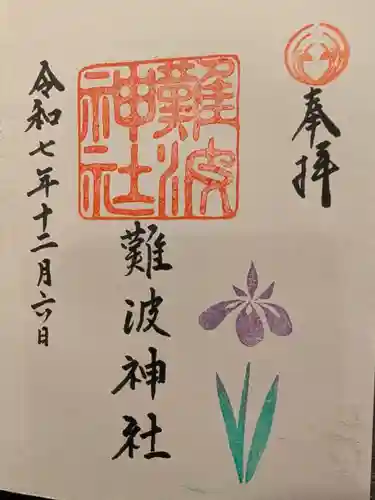 奉拝
難波
神社
難波神社
令和七年十二月六日